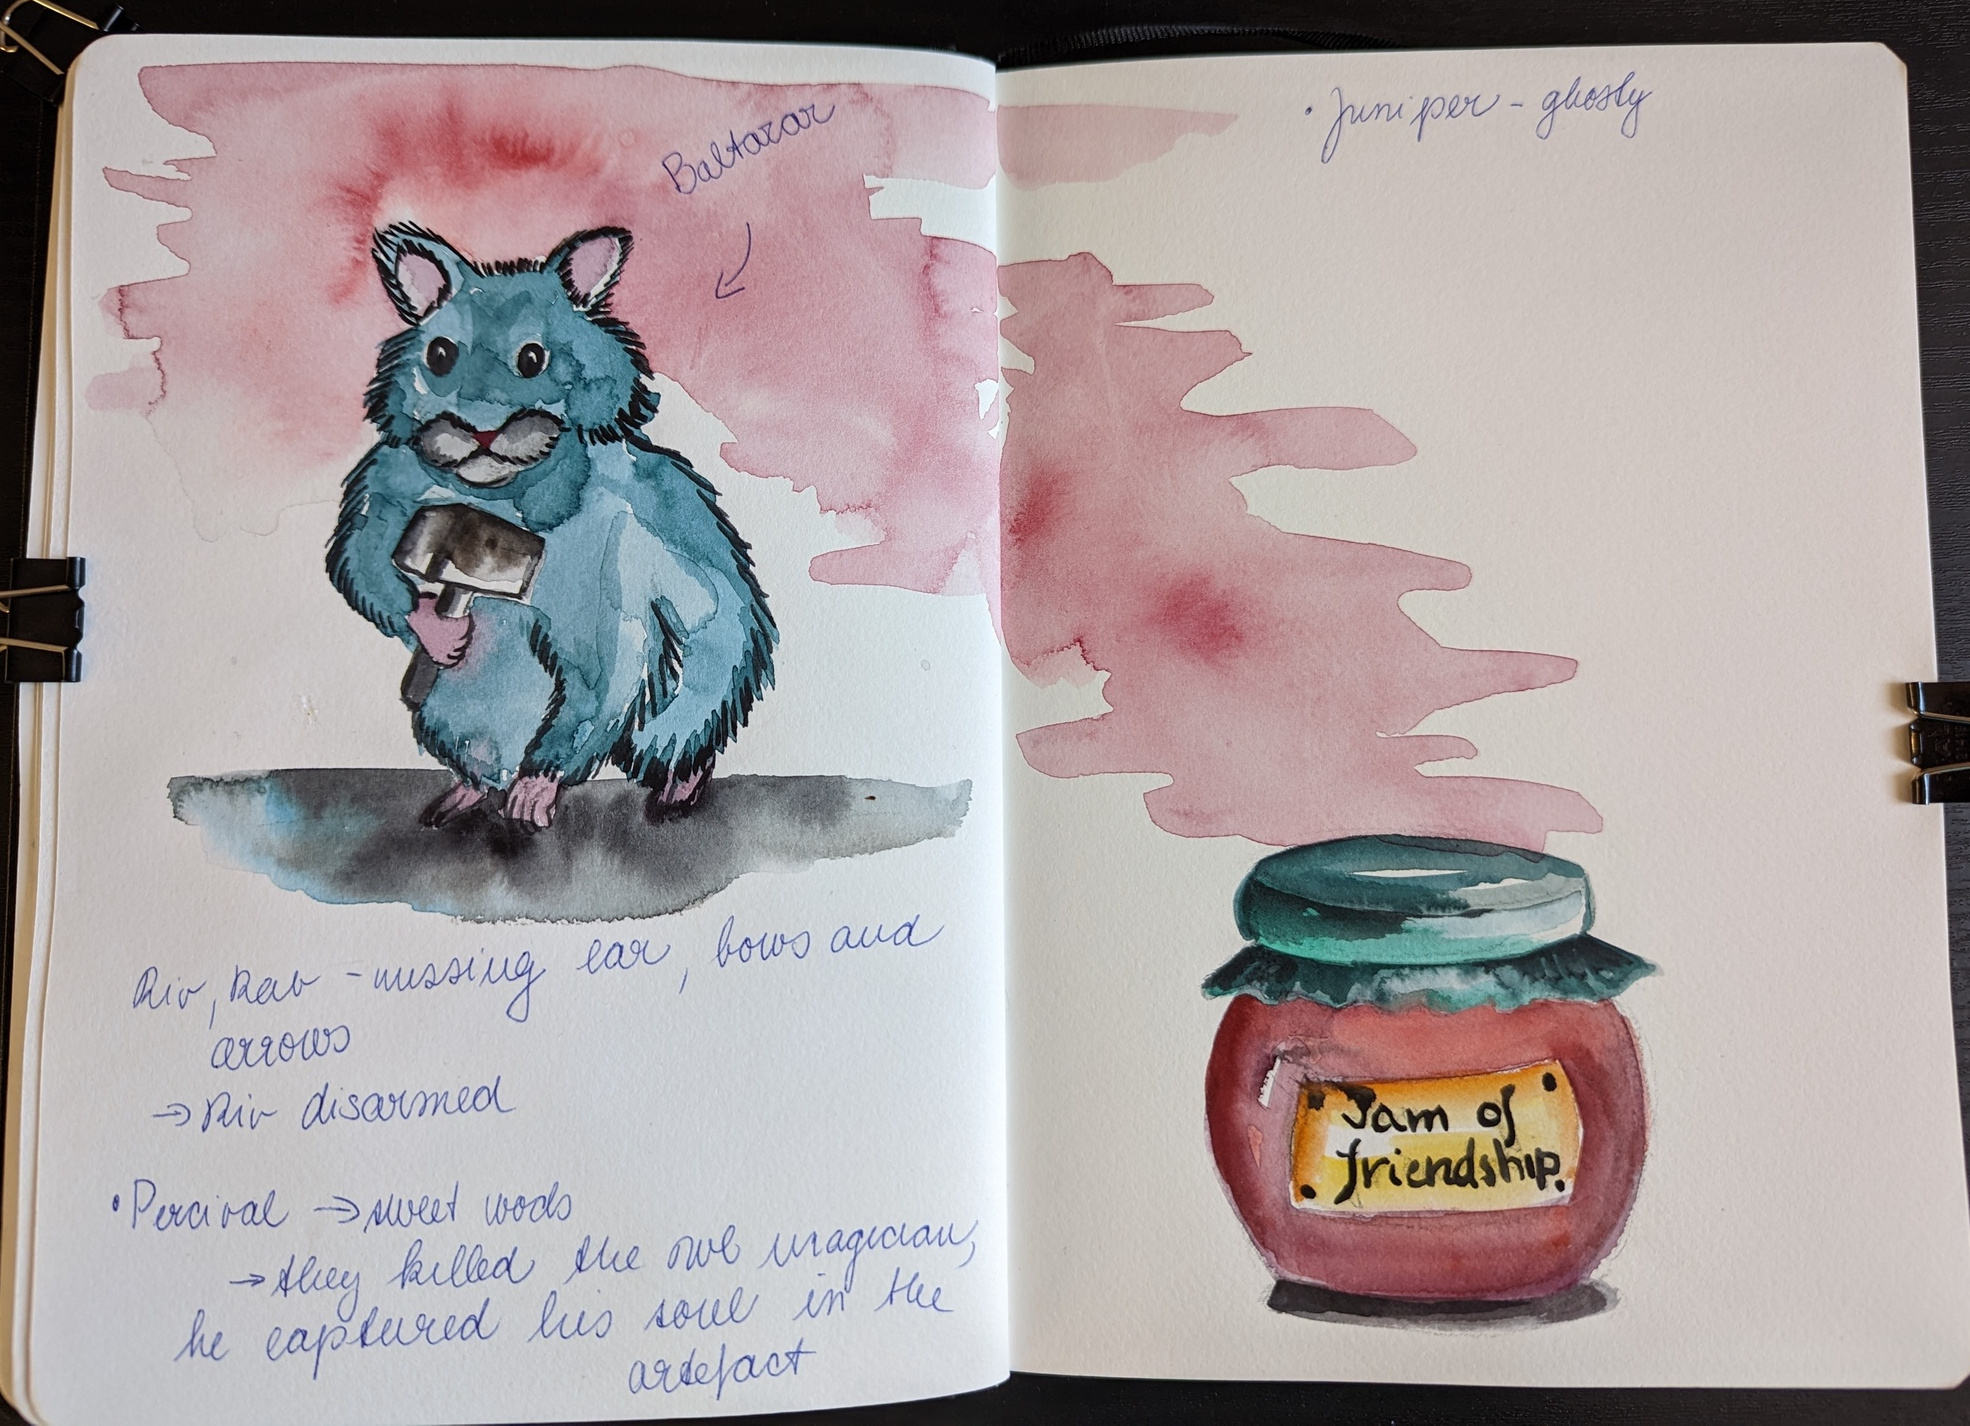 Baltazar
Riv, Rav - missing ear, bows and
arrows
→ Riv disarmed
• Percival → sweet woods
→ they killed the owl magician,
he captured his soul in the
artefact
• Juniper - ghosty
Jam of
friendship.